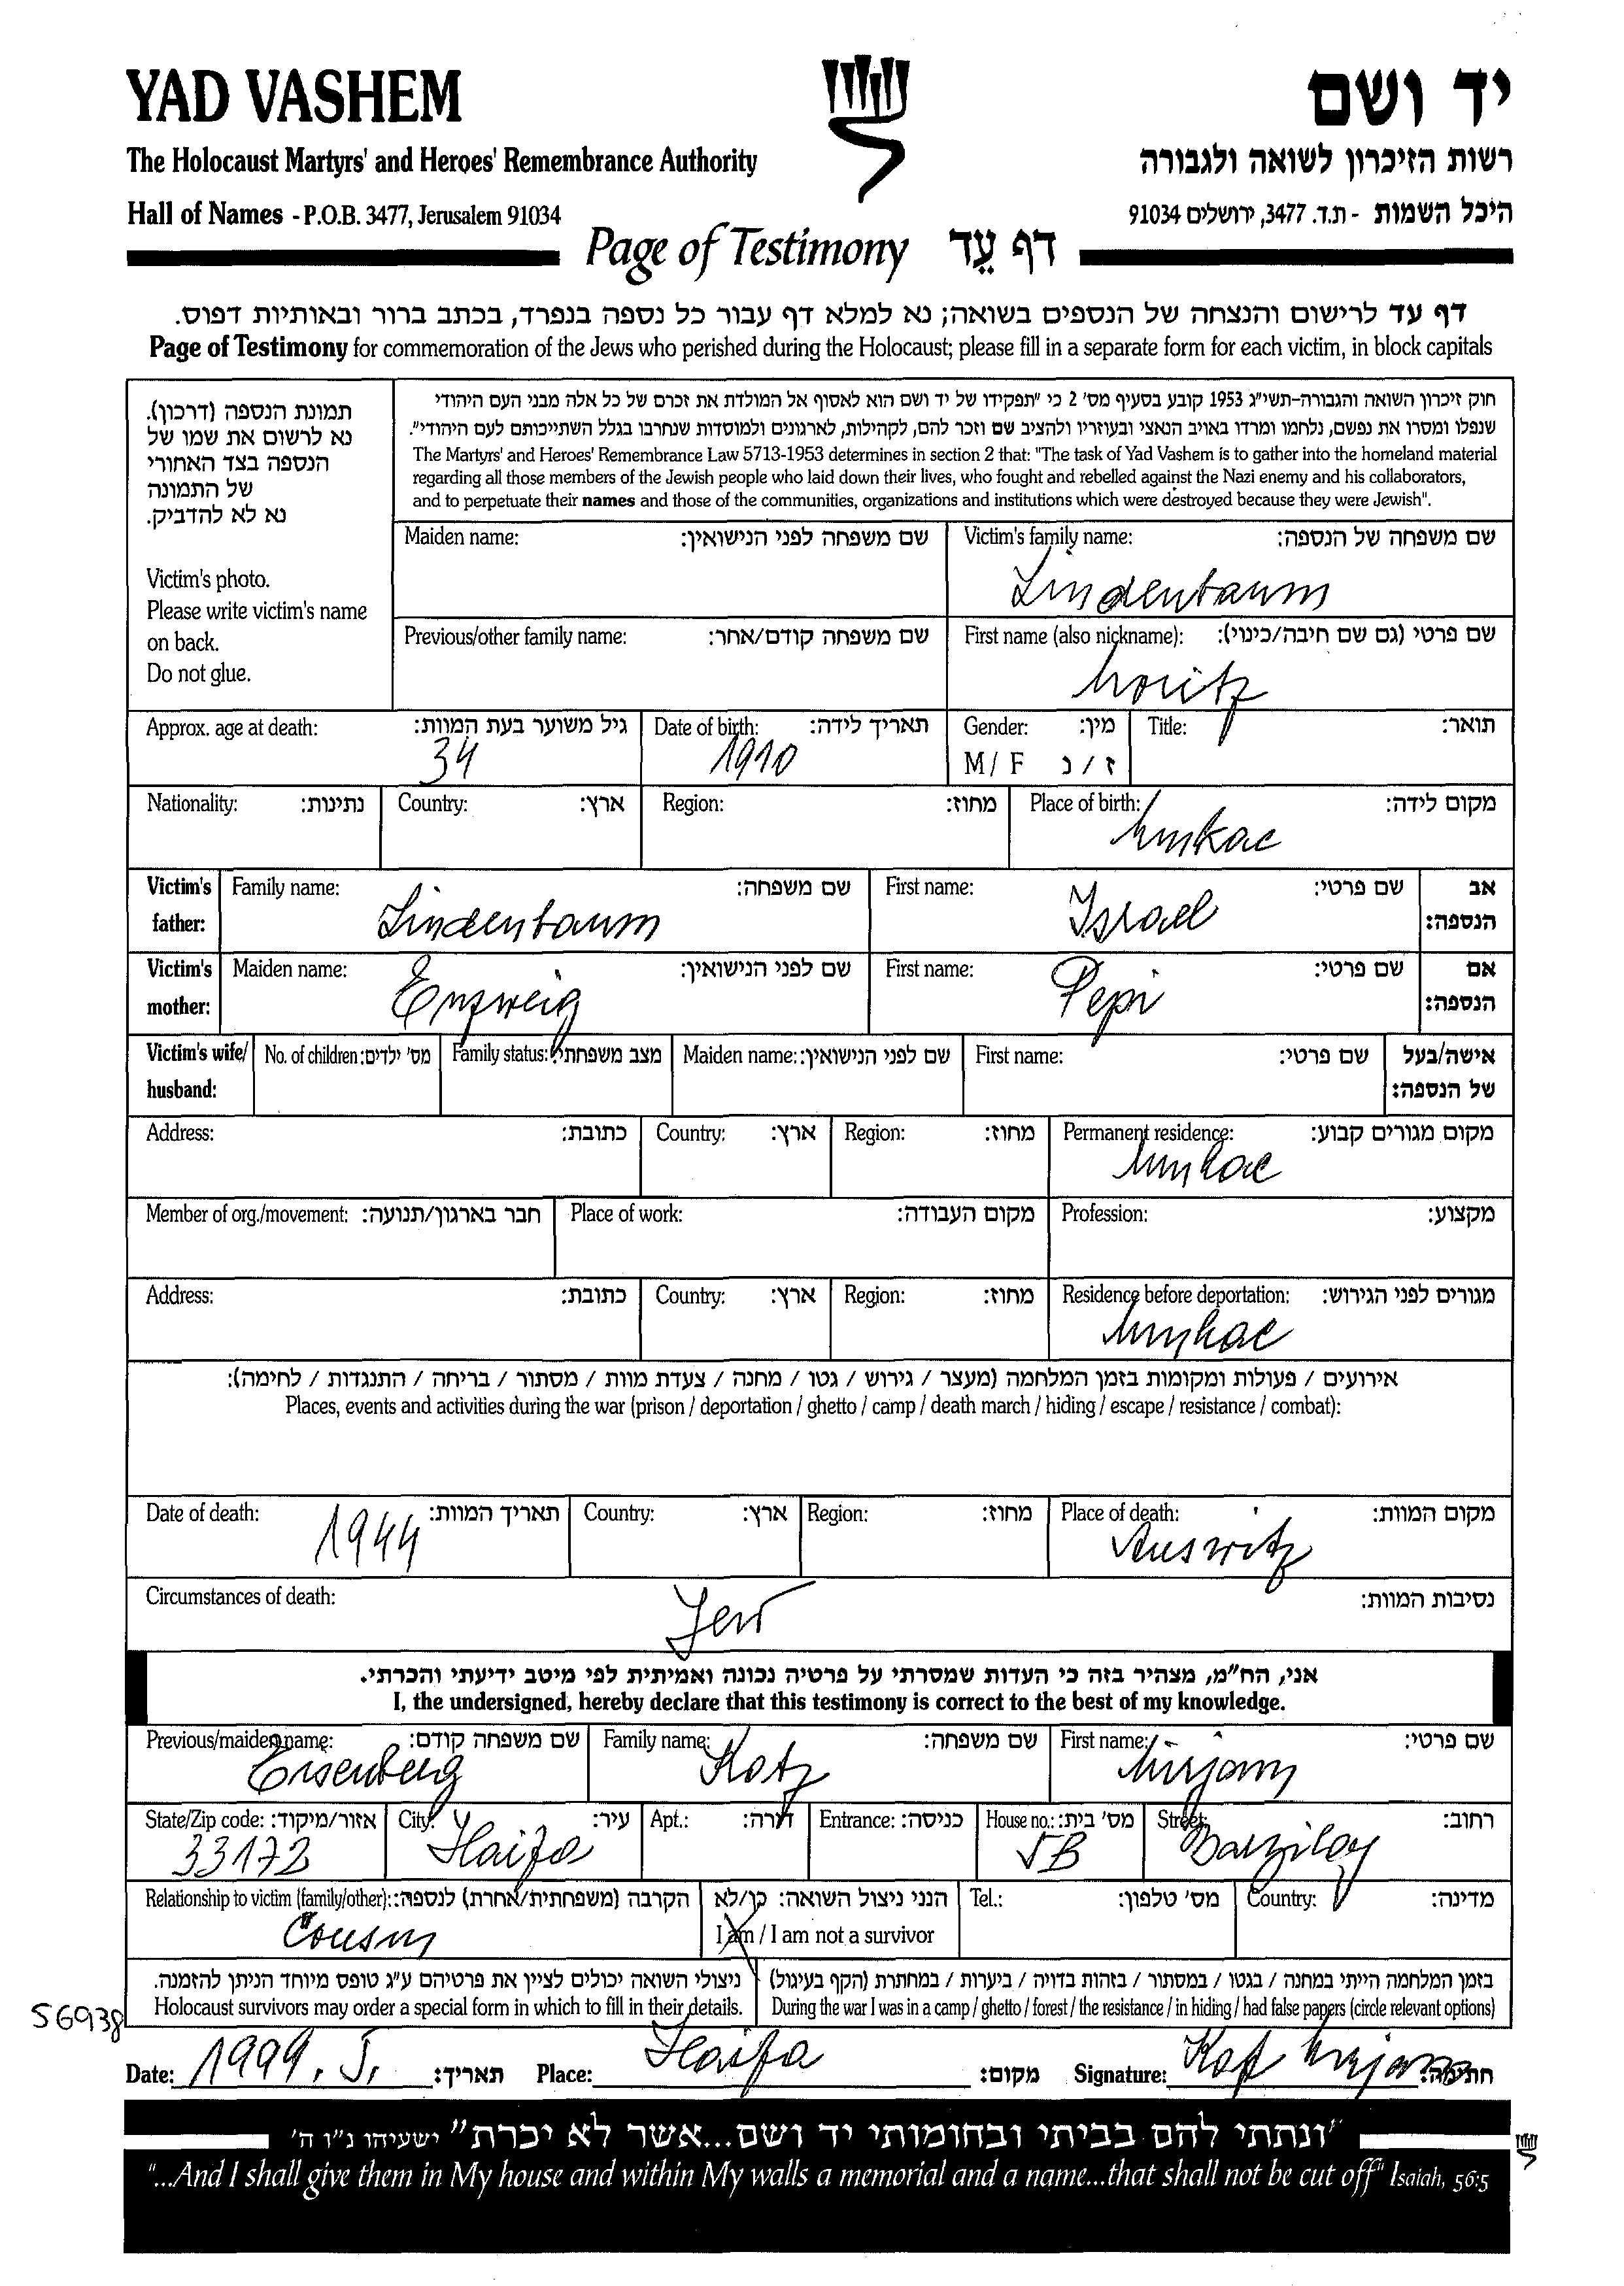 YAD VASHEM
יד ושם
The Holocaust Martyrs' and Heroes' Remembrance Authority
רשות הזיכרון לשואה ולגבורה
Hall of Names - P.O.B. 3477, Jerusalem 91034
היכל השמות - ת.ד. 3477, ירושלים 91034
Page of Testimony דף עֵד
דף עד לרישום והנצחה של הנספים בשואה; נא למלא דף עבור כל נספה בנפרד, בכתב ברור ובאותיות דפוס.
Page of Testimony for commemoration of the Jews who perished during the Holocaust; please fill in a separate form for each victim, in block capitals
תמונת הנספה (דרכון).
נא לרשום את שמו של
הנספה בצד האחורי
של התמונה
נא לא להדביק.
Victim's photo.
Please write victim's name
on back.
Do not glue.
חוק זיכרון השואה והגבורה-תשי"ג 1953 קובע בסעיף מס' 2 כי "תפקידו של יד ושם הוא לאסוף אל המולדת את זכרם של כל אלה מבני העם היהודי
שנפלו ומסרו את נפשם, נלחמו ומרדו באויב הנאצי ובעוזריו ולהציב שם וזכר להם, לקהילות, לארגונים ולמוסדות שנחרבו בגלל השתייכותם לעם היהודי".
The Martyrs' and Heroes' Remembrance Law 5713-1953 determines in section 2 that: "The task of Yad Vashem is to gather into the homeland material
regarding all those members of the Jewish people who laid down their lives, who fought and rebelled against the Nazi enemy and his collaborators,
and to perpetuate their names and those of the communities, organizations and institutions which were destroyed because they were Jewish".
Maiden name: שם משפחה לפני הנישואין: Victim's family name: שם משפחה של הנספה:
Lindenbaum
Previous/other family name: שם משפחה קודם/אחר: First name (also nickname): שם פרטי (גם שם חיבה/כינוי):
Moritz
Approx. age at death: גיל משוער בעת המוות: Date of birth: תאריך לידה: Gender: מין: Title: תואר:
34 1910 M / F ז / נ
Nationality: נתינות: Country: ארץ: Region: מחוז: Place of birth: מקום לידה:
Munkac
Victim's father: Family name: שם משפחה: First name: שם פרטי: אב הנספה:
Lindenbaum Israel
Victim's mother: Maiden name: שם לפני הנישואין: First name: שם פרטי: אם הנספה:
Enzweig Pepi
Victim's wife/ husband: No. of children: מס' ילדים: Family status: מצב משפחתי: Maiden name: שם לפני הנישואין: First name: שם פרטי: אישה/בעל של הנספה:
Address: כתובת: Country: ארץ: Region: מחוז: Permanent residence: מקום מגורים קבוע:
Munkac
Member of org./movement: חבר בארגון/תנועה: Place of work: מקום העבודה: Profession: מקצוע:
Address: כתובת: Country: ארץ: Region: מחוז: Residence before deportation: מגורים לפני הגירוש:
Munkac
אירועים / פעולות ומקומות בזמן המלחמה (מעצר / גירוש / גטו / מחנה / צעדת מוות / מסתור / בריחה / התנגדות / לחימה):
Places, events and activities during the war (prison / deportation / ghetto / camp / death march / hiding / escape / resistance / combat):
Date of death: תאריך המוות: Country: ארץ: Region: מחוז: Place of death: מקום המוות:
1944 Auswitz
Circumstances of death: נסיבות המוות:
Jew
אני, הח"מ, מצהיר בזה כי העדות שמסרתי על פרטיה נכונה ואמיתית לפי מיטב ידיעתי והכרתי.
I, the undersigned, hereby declare that this testimony is correct to the best of my knowledge.
Previous/maiden name: שם משפחה קודם: Family name: שם משפחה: First name: שם פרטי:
Eisenberg Katz Mirjam
State/Zip code: אזור/מיקוד: City: עיר: Apt.: דירה: Entrance: כניסה: House no.: מס' בית: Street: רחוב:
33172 Haifa 5B Barzilay
Relationship to victim (family/other): הקרבה (משפחתית/אחרת) לנספה: הנני ניצול השואה: כן/לא Tel.: מס' טלפון: Country: מדינה:
Cousin I am / I am not a survivor
ניצולי השואה יכולים לציין את פרטיהם ע"ג טופס מיוחד הניתן להזמנה.
Holocaust survivors may order a special form in which to fill in their details.
בזמן המלחמה הייתי במחנה / בגטו / במסתור / בזהות בדויה / ביערות / במחתרת (הקף בעיגול)
During the war I was in a camp / ghetto / forest / the resistance / in hiding / had false papers (circle relevant options)
56938
Date: 1999. 5. תאריך: Place: Haifa מקום: Signature: Katz Mirjam חתימה:
"ונתתי להם בביתי ובחומותי יד ושם...אשר לא יכרת" ישעיהו נ"ו ה'
"...And I shall give them in My house and within My walls a memorial and a name...that shall not be cut off" Isaiah, 56:5